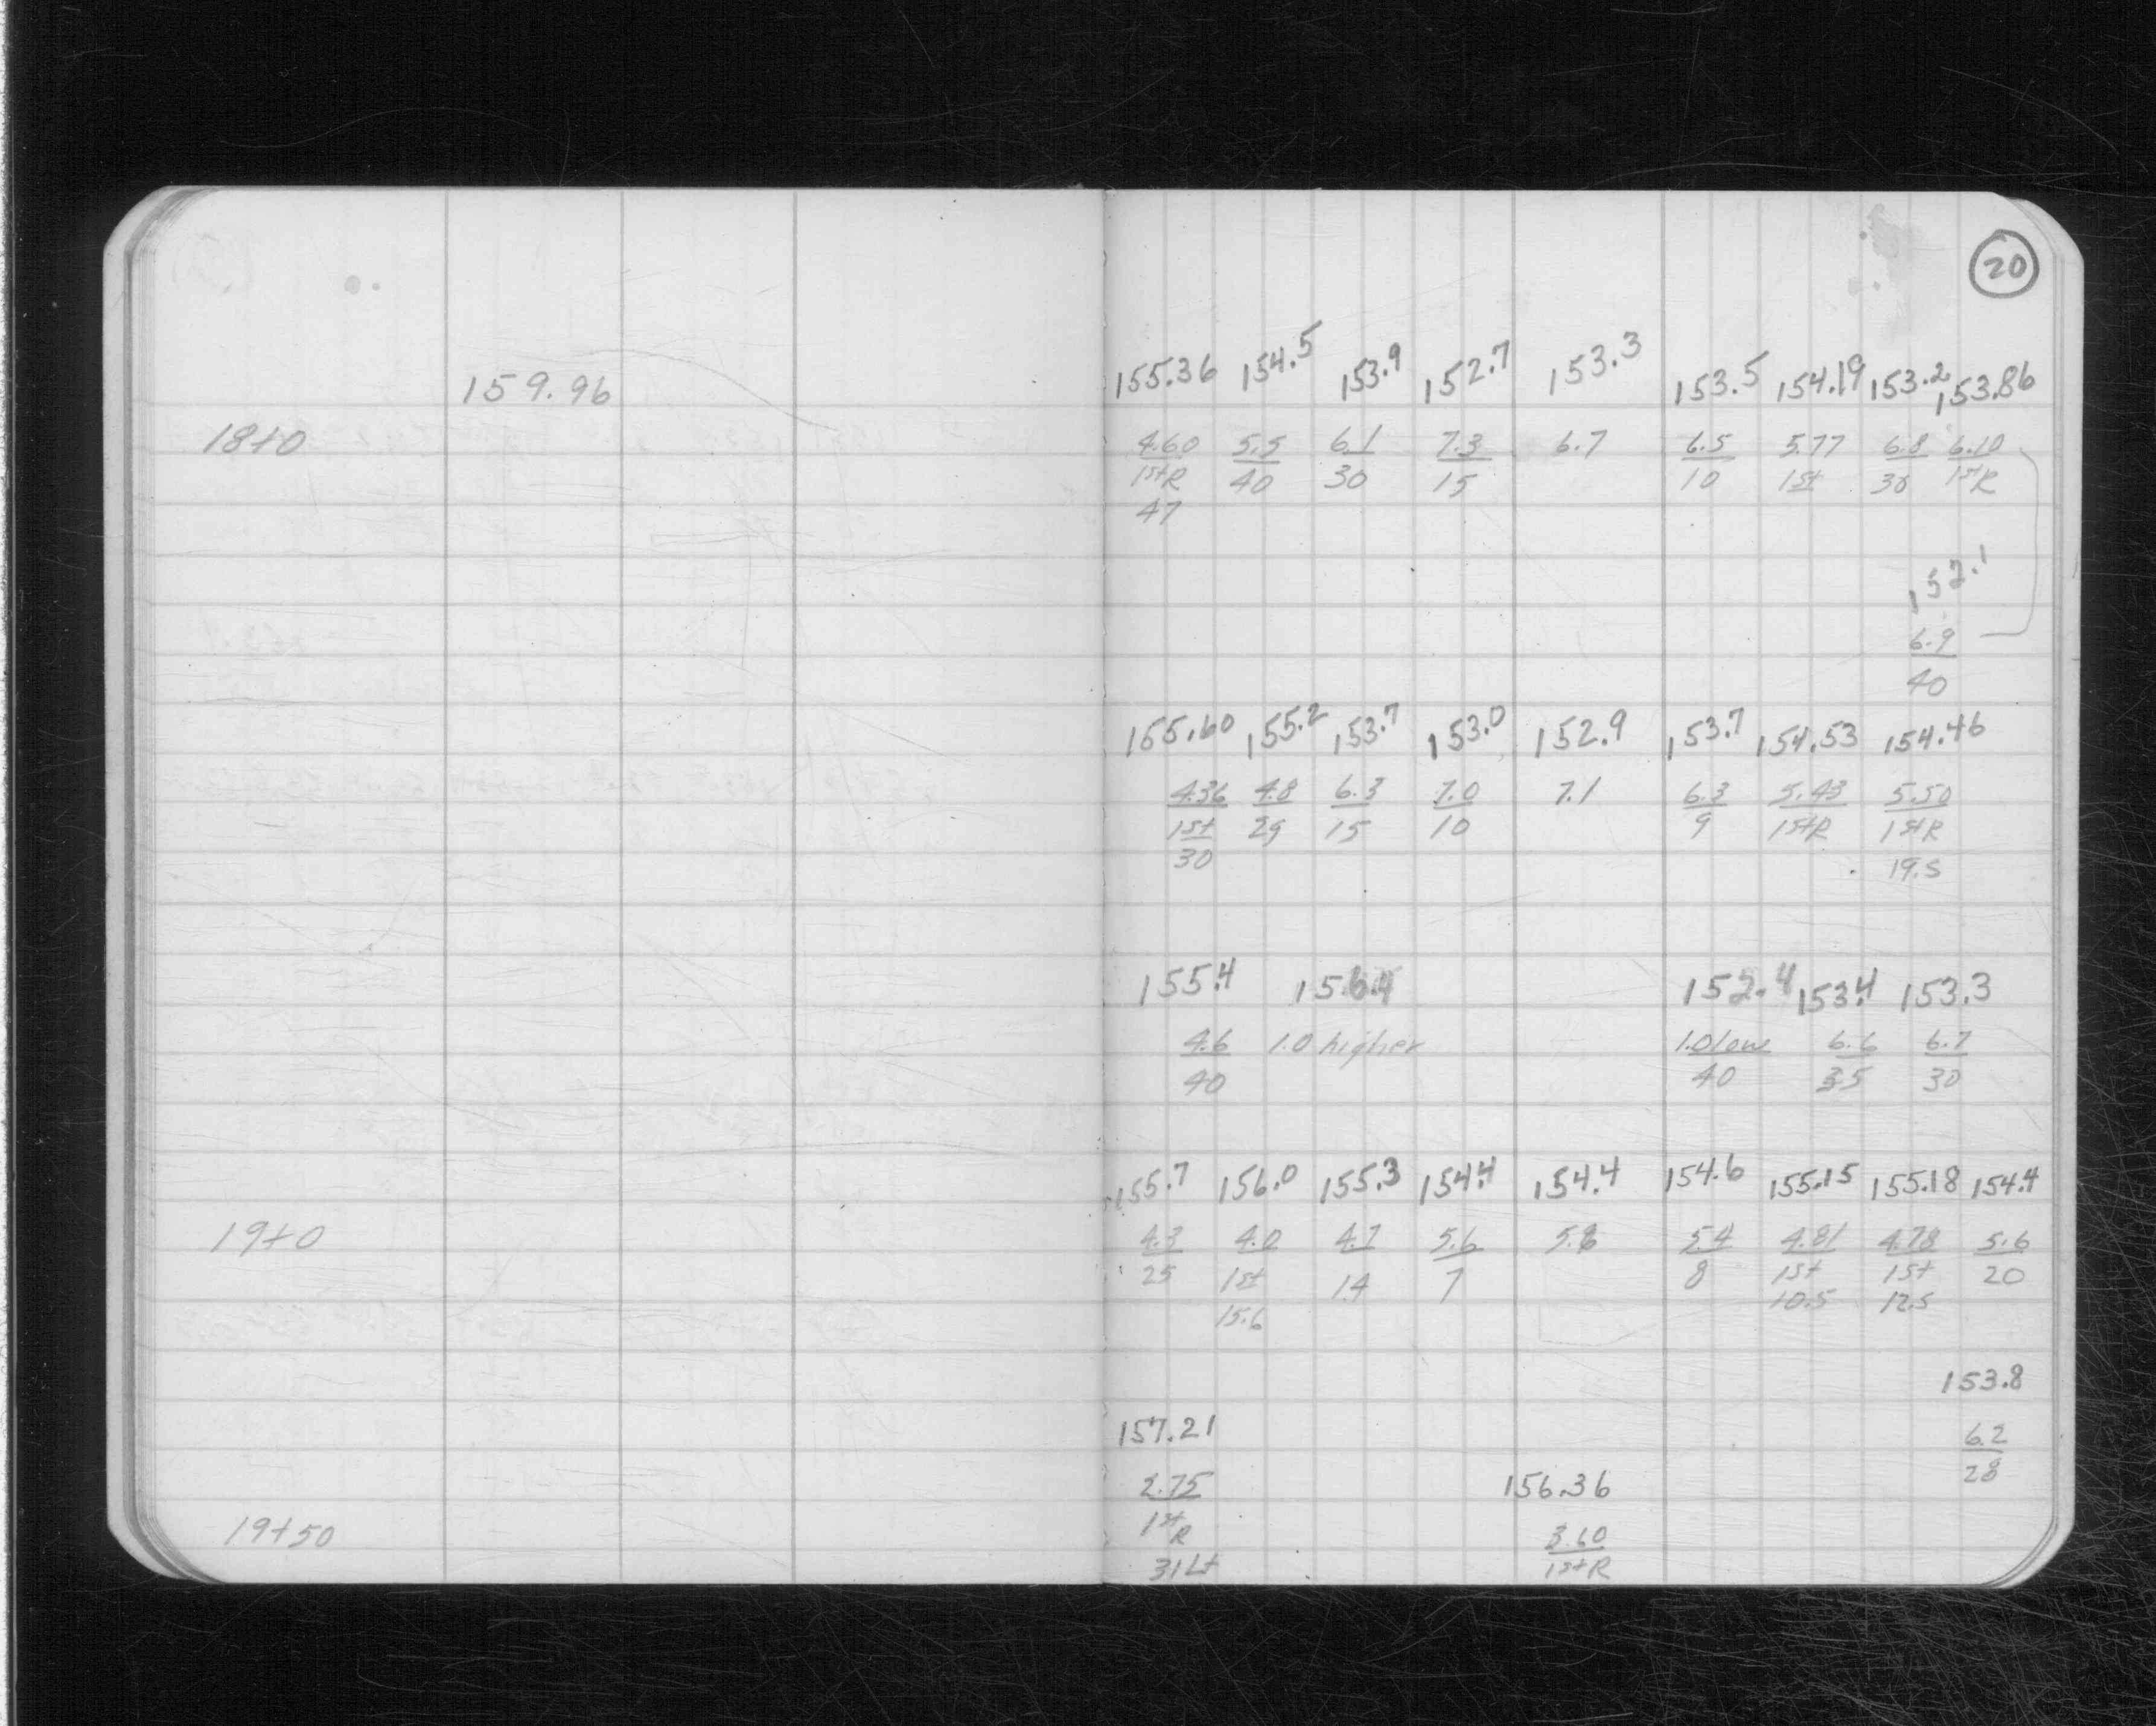 20
159.96
155.36 154.5 153.9 152.7 153.3 153.5 154.19 153.2 153.86
18+0 4.60 5.5 6.1 7.3 6.7 6.5 5.77 6.8 6.10
1stR 40 30 15 10 1st 30 1stR
47
152.1
6.9
40
155.60 155.2 153.7 153.0 152.9 153.7 154.53 154.46
4.36 4.8 6.3 7.0 7.1 6.3 5.43 5.50
1st 29 15 10 9 1stR 1stR
30 19.5
155.4 156.4 152.4 153.4 153.3
4.6 1.0 higher 1.0 low 6.6 6.7
40 40 35 30
155.7 156.0 155.3 154.4 154.4 154.6 155.15 155.18 154.4
19+0 4.3 4.0 4.7 5.6 5.6 5.4 4.81 4.78 5.6
25 1st 14 7 8 1st 1st 20
15.6 10.5 12.5
153.8
157.21 6.2
28
2.75 156.36
19+50 1stR 3.60
31Lt 1stR